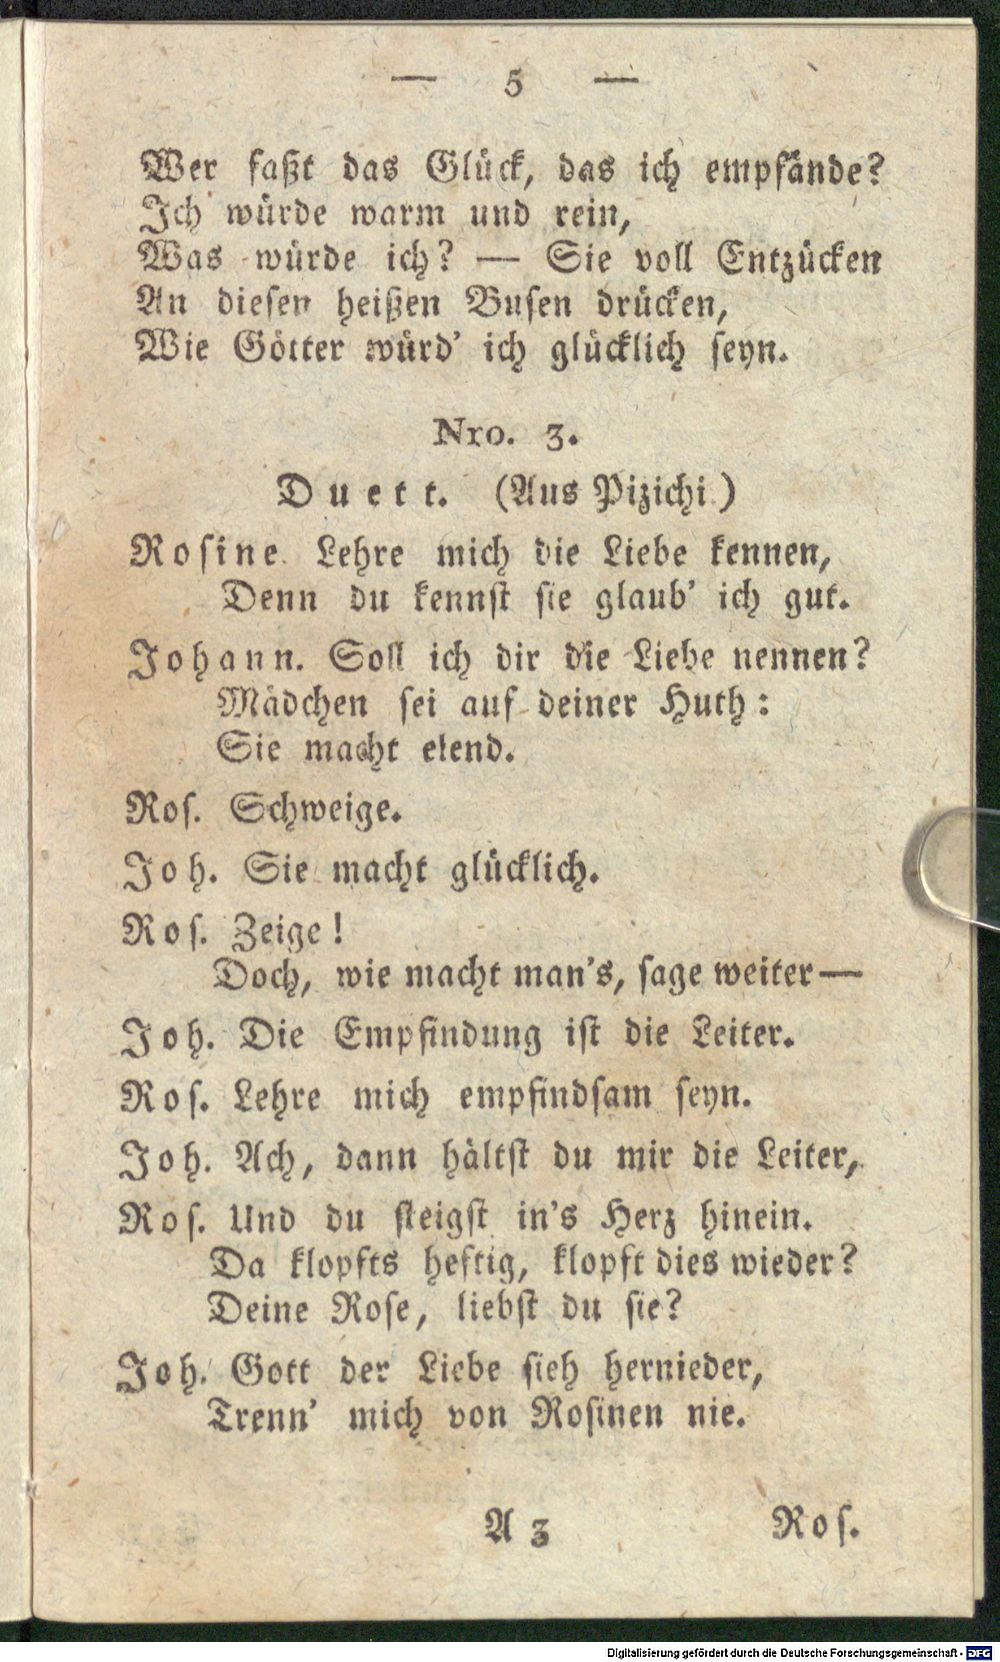 — 5 —
Wer faßt das Glück, das ich empfände?
Ich würde warm und rein,
Was würde ich? — Sie voll Entzücken
An diesen heißen Busen drücken,
Wie Götter würd' ich glücklich seyn.
Nro. 3.
Duett. (Aus Pizichi)
Rosine. Lehre mich die Liebe kennen,
Denn du kennst sie glaub' ich gut.
Johann. Soll ich dir die Liebe nennen?
Mädchen sei auf deiner Huth:
Sie macht elend.
Ros. Schweige.
Joh. Sie macht glücklich.
Ros. Zeige!
Doch, wie macht man's, sage weiter—
Joh. Die Empfindung ist die Leiter.
Ros. Lehre mich empfindsam seyn.
Joh. Ach, dann hältst du mir die Leiter,
Ros. Und du steigst in's Herz hinein.
Da klopfts heftig, klopft dies wieder?
Deine Rose, liebst du sie?
Joh. Gott der Liebe sieh hernieder,
Trenn' mich von Rosinen nie.
A 3 Ros.
Digitalisierung gefördert durch die Deutsche Forschungsgemeinschaft - DFG